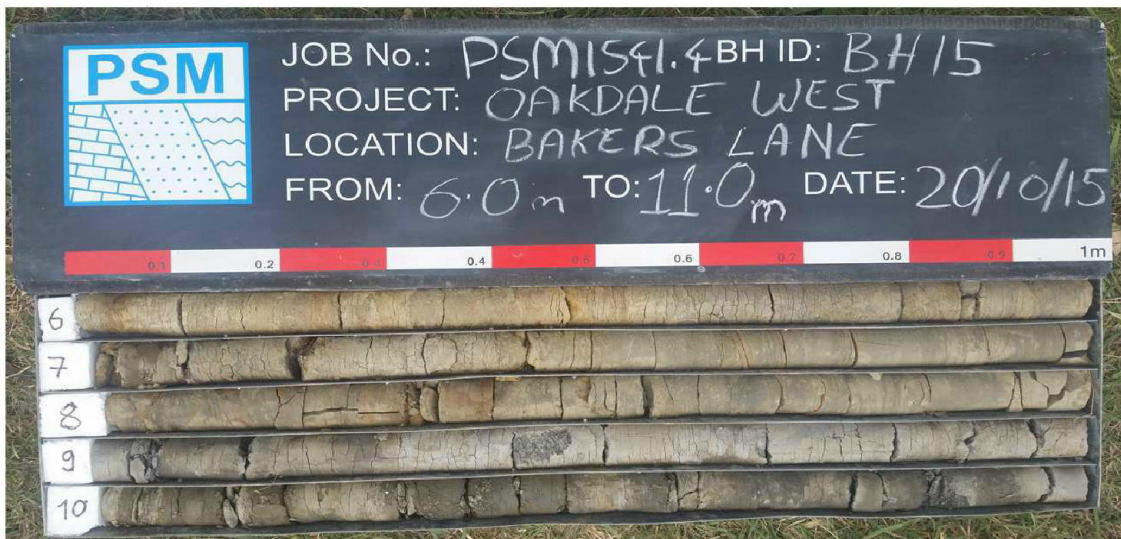 PSM
JOB No.: PSM1541.4 BH ID: BH15
PROJECT: OAKDALE WEST
LOCATION: BAKERS LANE
FROM: 6.0m TO: 11.0m DATE: 20/10/15
0.1 0.2 0.3 0.4 0.5 0.6 0.7 0.8 0.9 1m
6
7
8
9
10